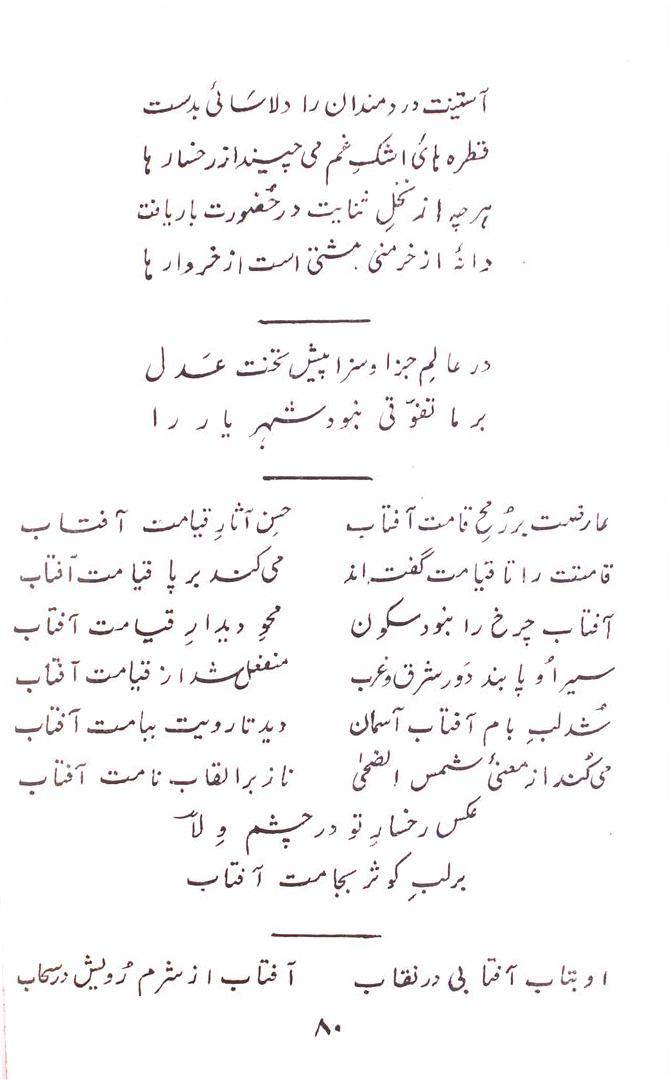 آستینت دردمندان را دلاسائی بدست
قطره هائ اشکِ غم می چیند از رخسار ها
هر چه از نخلِ ثنایت در حُضورت بار یافت
دانۂ از خرمنی مشتی است از خروار ها
در عالمِ جزا و سزا پیش تختِ عَدل
بر ما تفوّقی نبود شهر یار را
عارضت بر رُمحِ قامت آفتاب حسنِ آثارِ قیامت آفتاب
قامتت را تا قیامت گفته اند می کند بر پا قیامت آفتاب
آفتابِ چرخ را نبود سکون محوِ دیدارِ قیامت آفتاب
سیرِ اُو پابند دَورِ شرق و غرب منفعل شد از قیامت آفتاب
شُد لبِ بام آفتابِ آسمان دید تا رویت ببامت آفتاب
می کُند از معنیٔ شمس الضحیٰ ناز بر القاب نامت آفتاب
عکس رخسارِ تو در چشمِ وِلا
بر لبِ کوثر بجامت آفتاب
او بتاب آفتابی در نقاب آفتاب از شرم رُویش در سحاب
۸۰